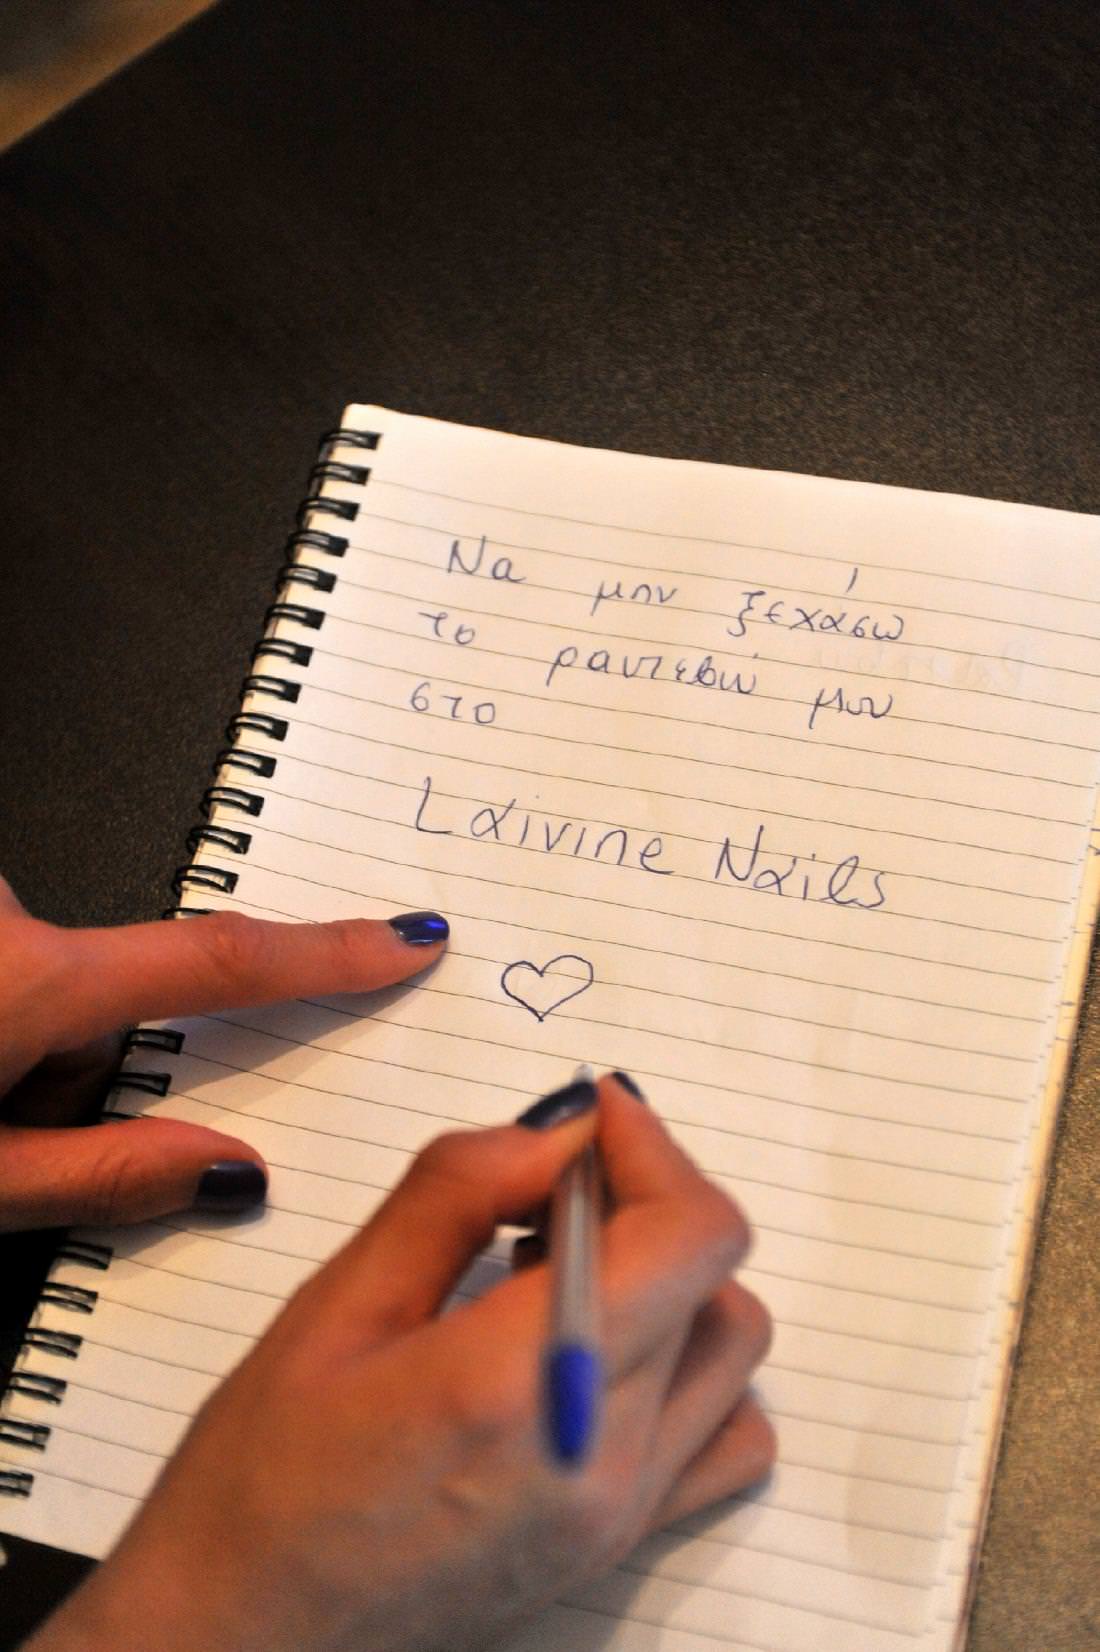 Να μην ξεχάσω
το ραντεβού μου
στο
Laivine Nails